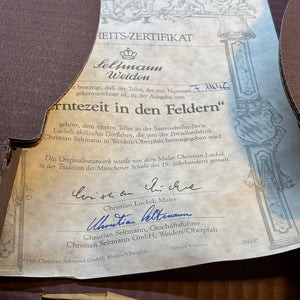 HEITS-ZERTIFIKAT
Seltmann
Weiden
bestätigt, daß der Teller, der mit Nummer F 1446
gekennzeichnet ist, zu der Ausgabe von
"Erntezeit in den Feldern"
gehört, dem vierten Teller in der Sammelteller-Serie
Lückels idyllisches Dorfleben, die von der Porzellanfabrik
Christian Seltmann in Weiden/Oberpfalz herausgegeben wird.
Das Originalkunstwerk wurde von dem Maler Christian Lückel
in der Tradition der Münchener Schule des 19. Jahrhunderts gemalt.
Christian Lückel, Maler
Christian Seltmann
Christian Seltmann, Geschäftsführer
Christian Seltmann GmbH, Weiden/Oberpfalz
Christian Seltmann GmbH, Weiden/Oberpfalz